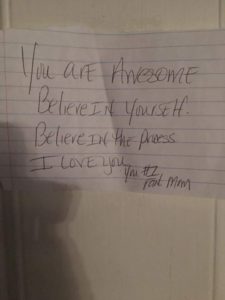 You are Awesome
Believe In Yourself.
Believe In the Process
I Love You
You #1
Fan Mom